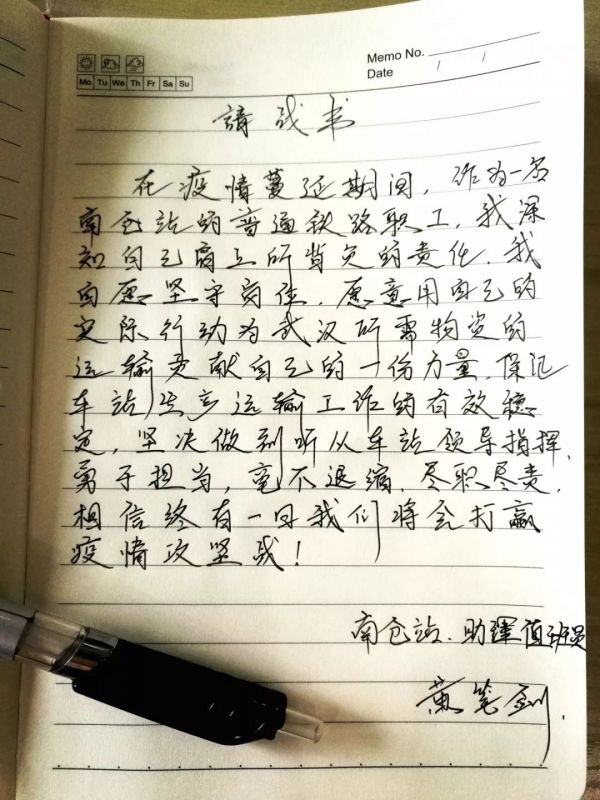 Memo No.
Date / /
Mo Tu We Th Fr Sa Su
請战书
在疫情蔓延期间，作为一名
南仓站的普通铁路职工，我深
知自己肩上所背负的责任，我
自愿坚守岗位，愿意用自己的
实际行动为武汉所需物资的
运输贡献自己的一份力量，保证
车站生产运输工作的有效稳
定，坚决做到听从车站领导指挥，
勇于担当，毫不退缩，尽职尽责，
相信终有一日我们将会打赢
疫情攻坚战！
南仓站、助理值班员
黄笔剑